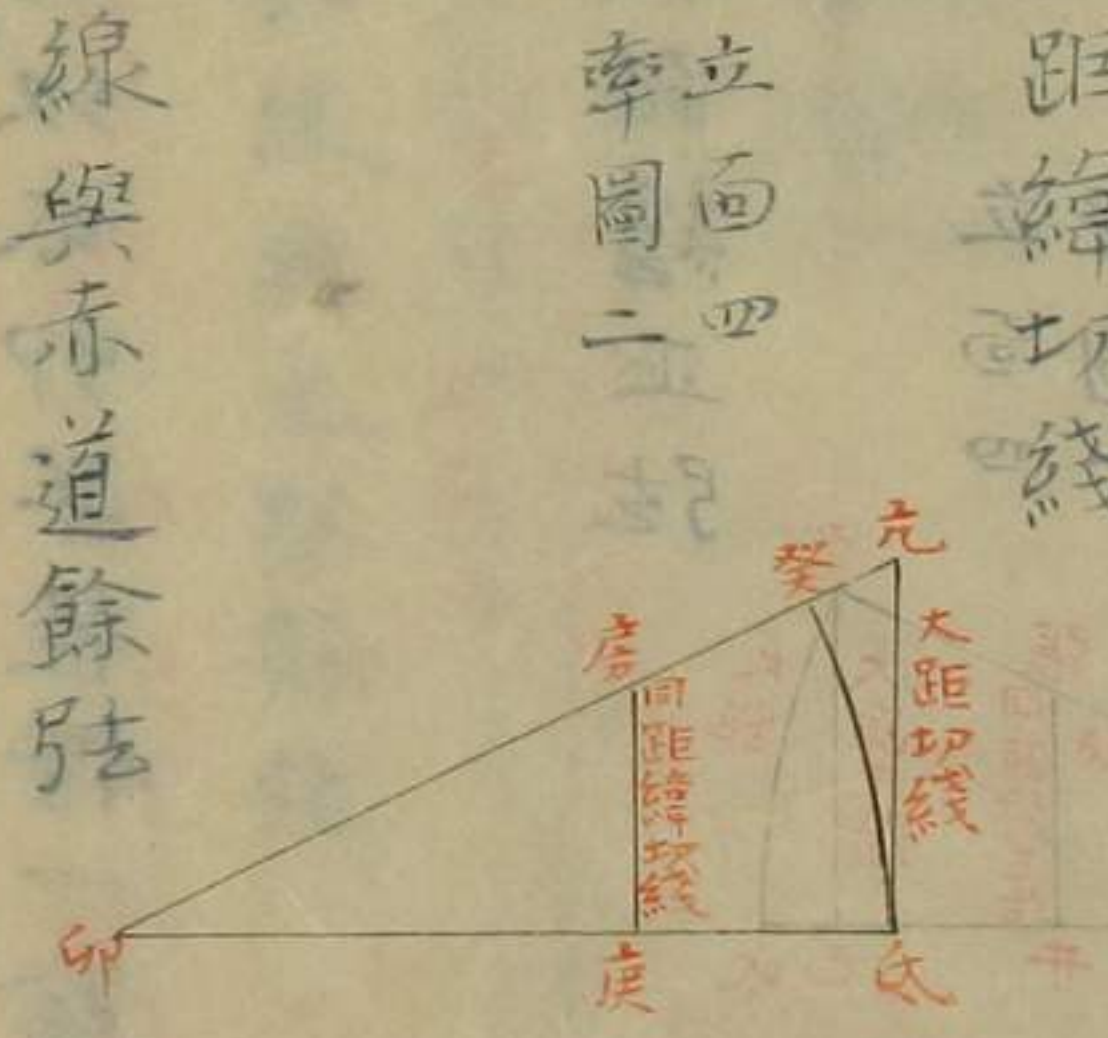 距緯切綫
立面四
率圖二
線與赤道餘弦
亢
癸
大距切綫
房
同距緯切綫
卯
庚
氐